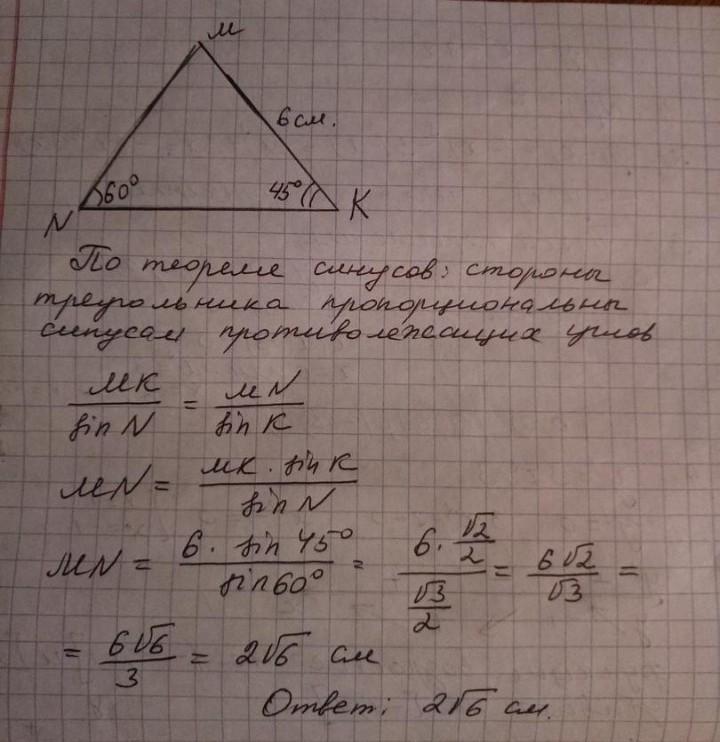 M
6 см.
60°
45°
N
K
По теореме синусов: стороны
треугольника пропорциональны
синусам противолежащих углов
MK/sin N = MN/sin K
MN = MK · sin K/sin N
MN = 6 · sin 45°/sin 60° = 6 · √2/2/√3/2 = 6√2/√3 =
= 6√6/3 = 2√6 см
Ответ: 2√6 см.